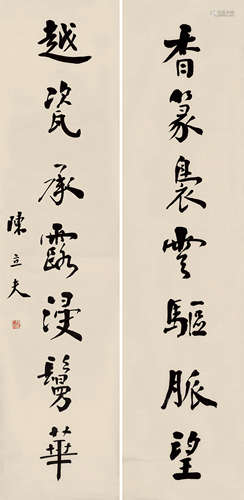 香篆裊雲驅脈望
越瓷承露浸鬘華
陳立夫